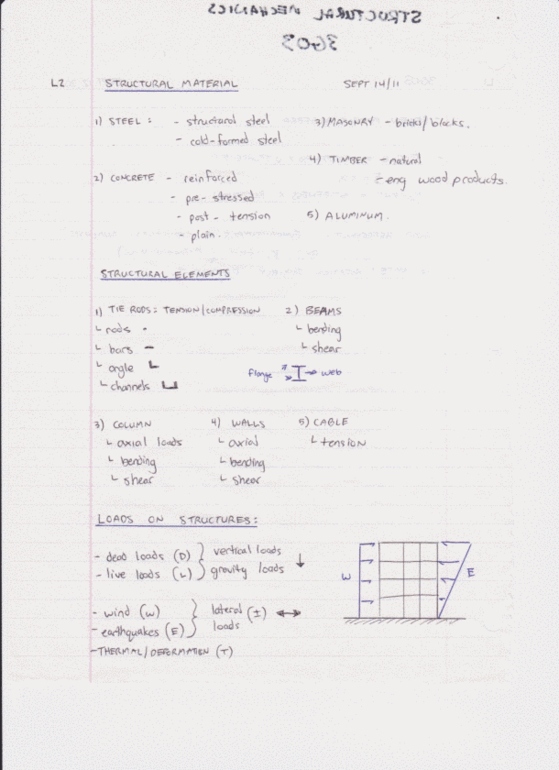 STRUCTURAL MECHANICS
3G03
L2 STRUCTURAL MATERIAL SEPT 14/11
1) STEEL: - structural steel
- cold-formed steel
2) CONCRETE - reinforced
- pre-stressed
- post-tension
- plain.
3) MASONRY - bricks/blocks.
4) TIMBER - natural
- eng wood products.
5) ALUMINUM.
STRUCTURAL ELEMENTS
1) TIE RODS: TENSION/COMPRESSION
rods
bars
angle
channels
2) BEAMS
bending
shear
flange web
3) COLUMN
axial loads
bending
shear
4) WALLS
axial
bending
shear
5) CABLE
tension
LOADS ON STRUCTURES:
- dead loads (D)
- live loads (L)
vertical loads
gravity loads
- wind (W)
- earthquakes (E)
lateral (±)
loads
- THERMAL/DEFORMATION (T)
W
E